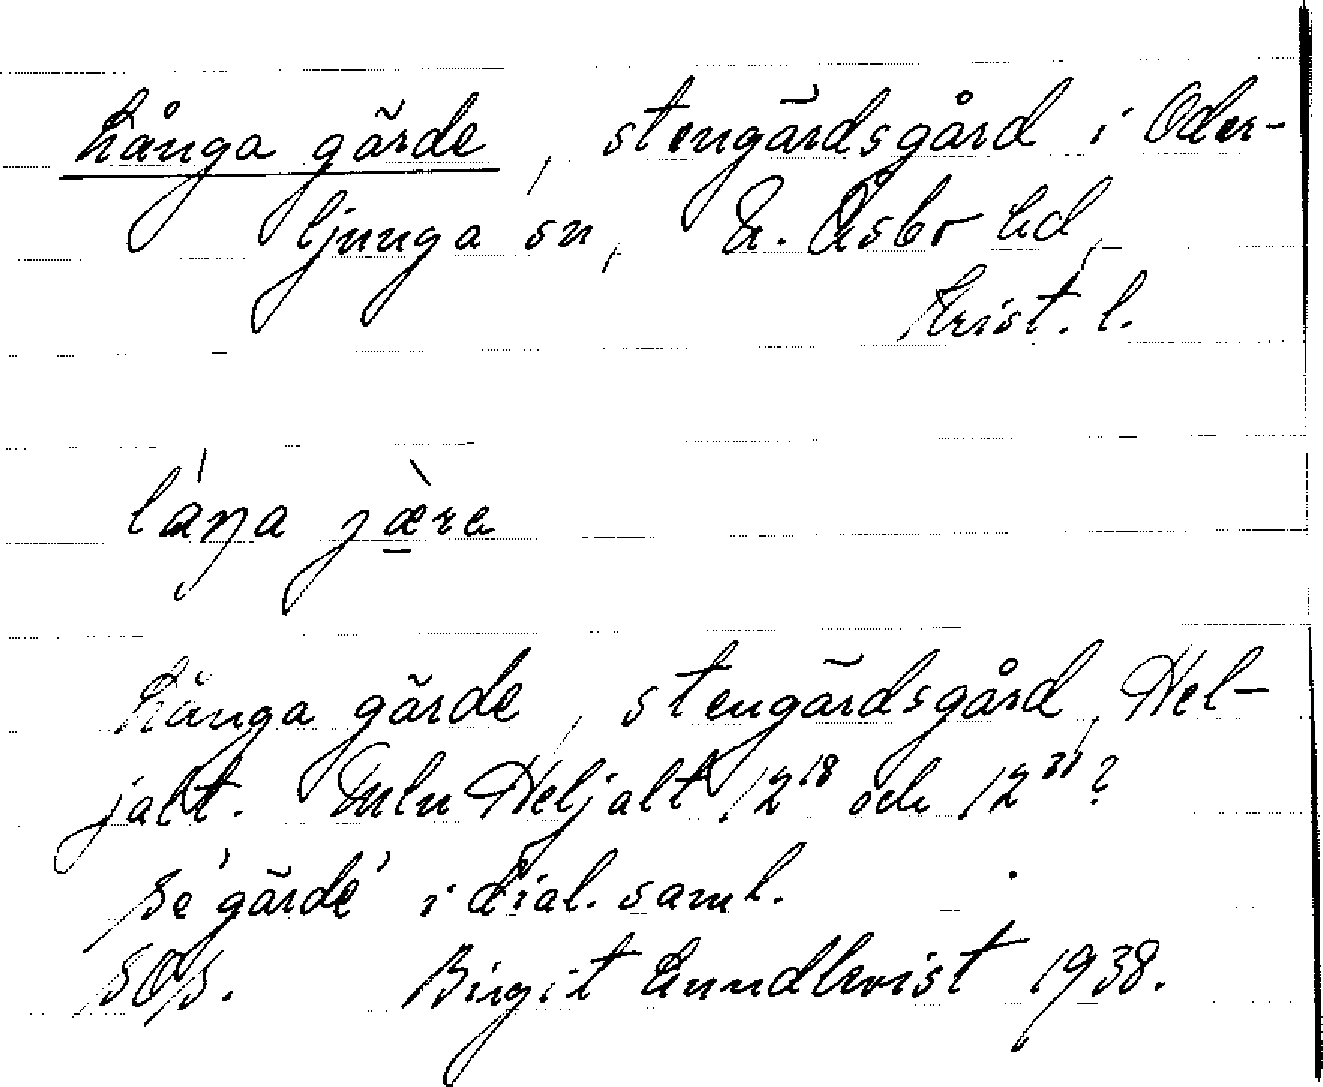 Långa gärde, stengärdsgård i Oder-
ljunga sn, N. Åsbo hd,
Krist. l.
láŋa jæ̀re
Långa gärde, stengärdsgård, Hel-
jalt. Mln Heljalt 12¹⁸ och 12³¹?
Se 'gärde' i dial. saml.
SOS. Birgit Lundkvist 1938.